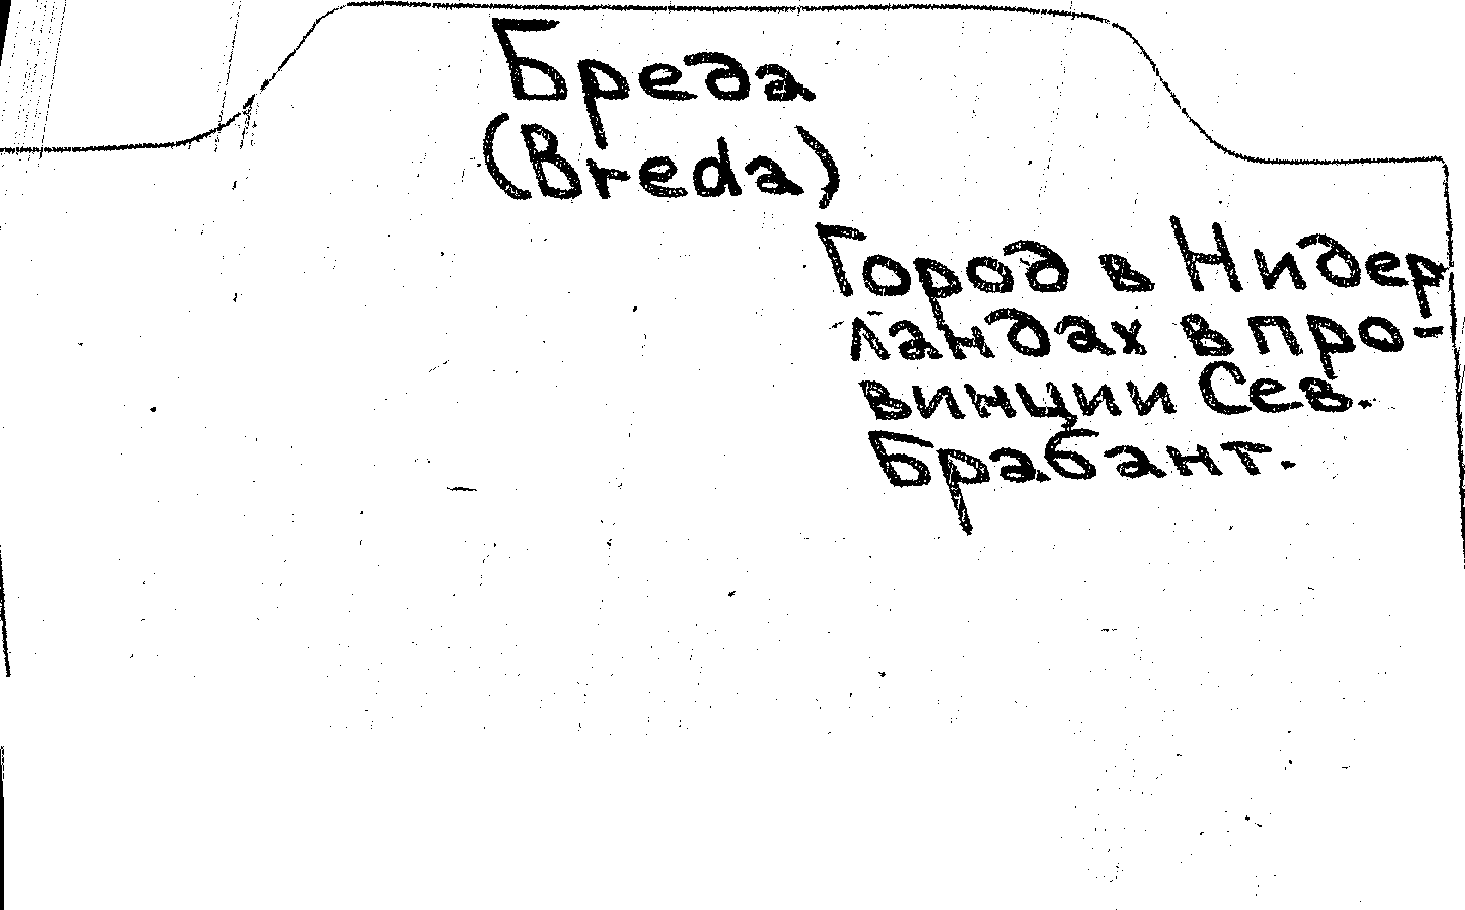 Бреда
(Breda)
Город в Нидер
ландах в про-
винции Сев.
Брабант.